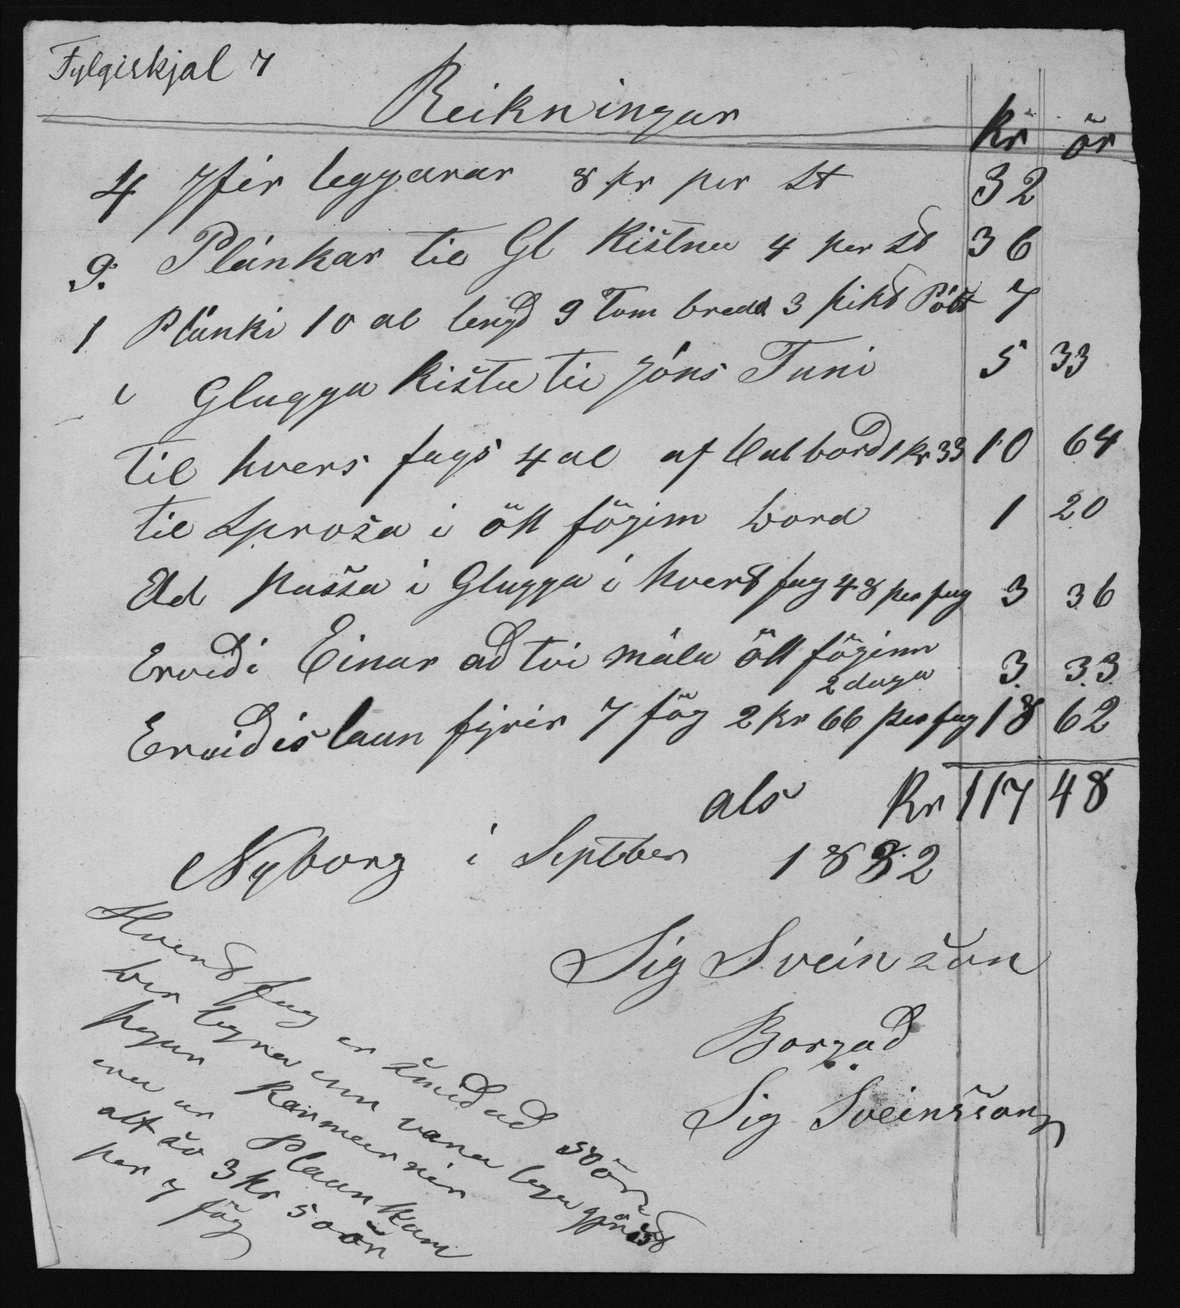 Fylgiskjal 7
Reikningur
kr ör
4 yfir leggarar 8 kr per St 32
9. Plánkar til Gl Kistna 4 per St 36
1 Plánki 10 al lengd 9 Tom bredd 3 þikt Pótt 7
1 Glugga Kistu til Jóns Tuni 5 33
til hvers fags 4 al af Valbord 1 kr 33 10 64
til Sprossa i öll föginn bord 1 20
Ad Passa i Glugga i hvert fag 48 per fag 3 36
Ervidi Einar ad tvi mála öll föginn
2 daga 3 33
Ervidislaun fyrir 7 fög 2 kr 66 per fag 18 62
als Kr 117 48
Nyborg i Septber 1882
Sig Sveinsson
Borgad
Sig Sveinsson
Hvert fag er smidad 50 ör
ver en vana lega gjörist
þegar Karmarnir
eru ur Plaunkum
alt ad 3 kr 50 ör
per 7 fög